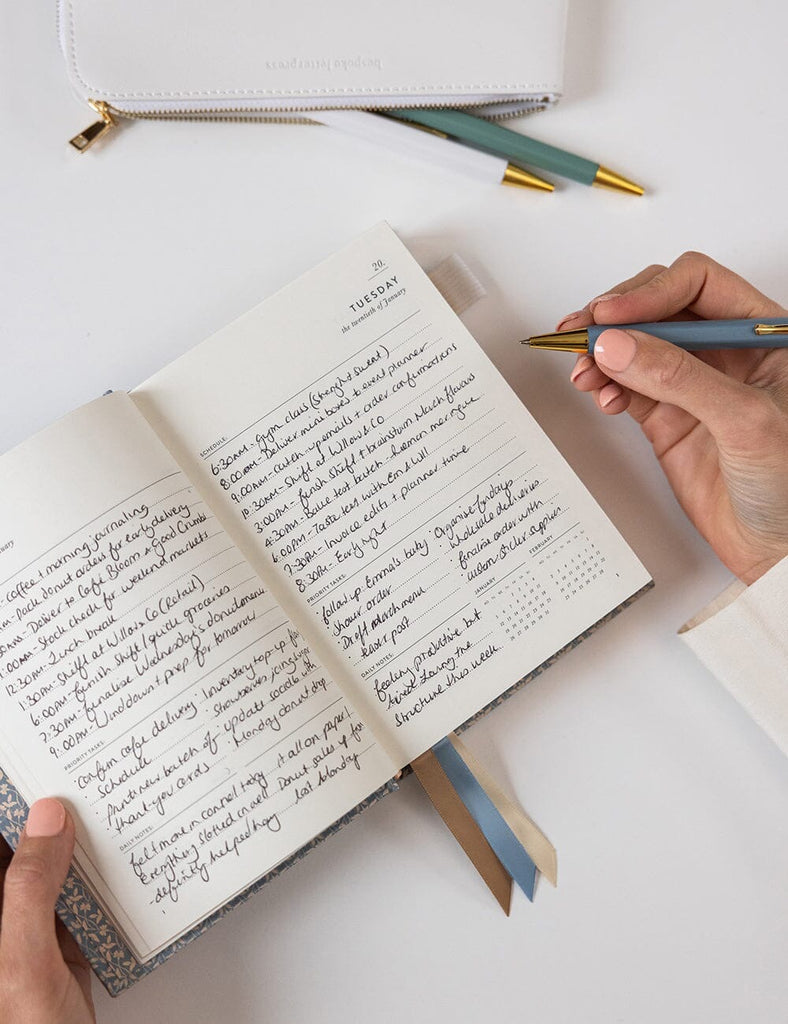 bespoke letterpress
- coffee + morning journaling
- pack donut orders for early delivery
- Deliver to Café Bloom + Good Crumbs
- Stock check for weekend markets
- Lunch break
1:30AM - Shift at Willow & Co (Retail)
6:00AM - finish shift / quick groceries
7:30AM - finalise Wednesday's donut menu
9:00AM - Wind down + prep for tomorrow
PRIORITY TASKS:
· confirm cafe delivery
schedule
· Print new batch of
thank you cards
· Inventory top-up for
Strawberries, icing
· update socials with
Monday donut drop
DAILY NOTES:
felt more in control today it all on paper!
Everything slotted in well. Donut sales up for
- definitely helped having last Monday
20.
TUESDAY
the twentieth of January
SCHEDULE:
6:30AM - Gym class (Strength sweat)
8:00AM - Deliver mini boxes to event planner
9:00AM - catch-up emails + order confirmations
10:30AM - Shift at Willow & Co
3:00PM - finish Shift + brainstorm March flavours
4:30PM - Bake test batch - Lemon meringue
6:00PM - Taste test with Em & Will
7:30PM - Invoice edits + planner time
8:30PM - Early night
PRIORITY TASKS:
· follow up Emma's baby
shower order
· Draft March menu
· Easter post
· Organise fundays
wholesale deliveries
· finalise order with
custom sticker supplier
DAILY NOTES:
feeling productive but
tired. Loving the
structure this week.
JANUARY
FEBRUARY